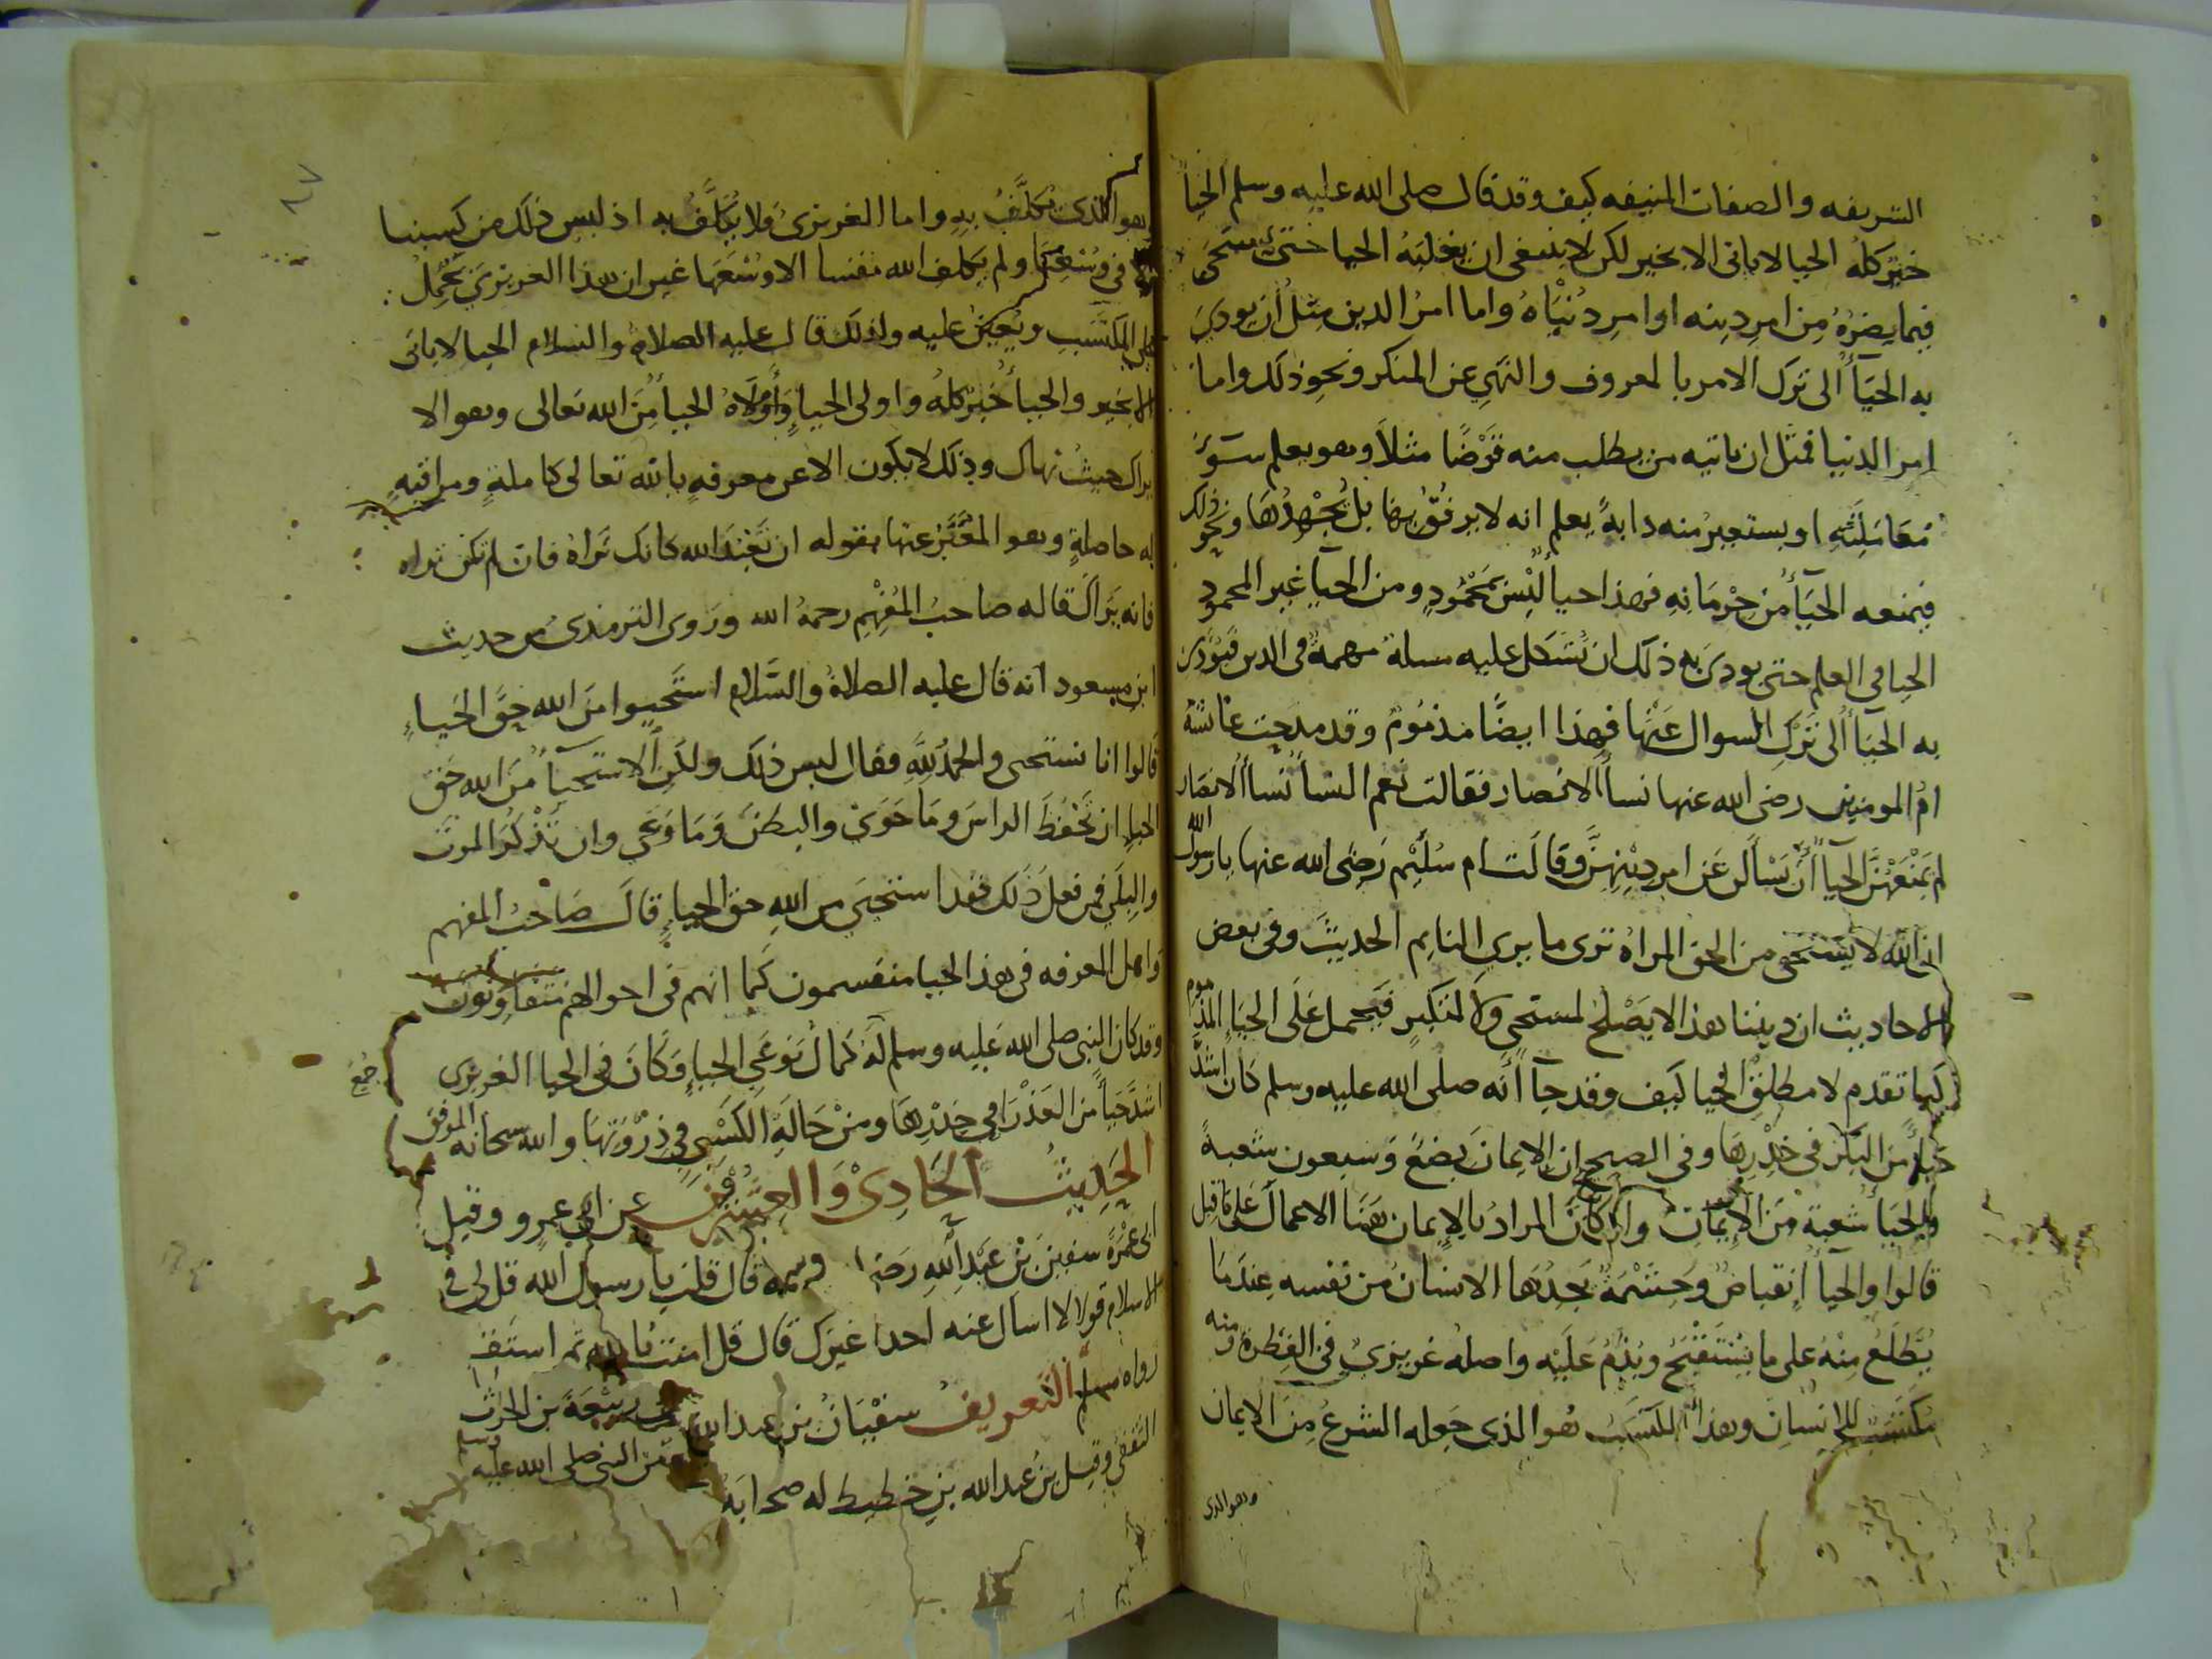 الشريفه والصفات المنيفه كيف وقد قال صلى الله عليه وسلم الحيا
خير كله الحيا لاياتى الا بخير لكن لا ينبغى ان يغلبه الحيا حتى يستحى
فيما يضره من امر دينه او امر دنياه واما امر الدين مثل ان يودى
به الحيآ الى ترك الامر بالمعروف والنهي عن المنكر ونحو ذلك واما
امر الدنيا فمثل ان ياتيه من يطلب منه قرضا مثلا وهو يعلم سوء
معاملته او يستعير منه دابة يعلم انه لا يرفق بها بل يجهدها ونحو ذلك
فيمنعه الحيآ من حرمانه فهذا حيا ليس بمحمود ومن الحيآ غير المحمود
الحيا فى العلم حتى يودى به ذلك ان تشكل عليه مسلة مهمة فى الدين فيودى
به الحيآ الى ترك السوال عنها فهذا ايضا مذموم وقد مدحت عائشة
ام المومنين رضى الله عنها نسآ الانصار فقالت نعم النسآ نسآ الانصار
لم يمنعهن الحيآ ان يسالن عن امر دينهن وقالت ام سليم رضى الله عنها يا رسول الله
ان الله لا يستحى من الحق المراة ترى ما يرى النايم الحديث وفى بعض
الاحاديث ان ديننا هذا لا يصلح لمستحى ولا لمتكبر فيحمل على الحيآ المذموم
كما تقدم لا مطلق الحيا كيف وقد جآ انه صلى الله عليه وسلم كان اشد
حيآ من البكر فى خدرها وفى الصحيح ان الايمان بضع وسبعون شعبة
والحيآ شعبة من الايمان وان كان المراد بالايمان هنا الاعمال على ما قيل
قالوا والحيآ انقباض وحشمة يجدها الانسان من نفسه عندما
يطلع منه على ما يستقبح ويذم عليه واصله غريزى فى الفطرة ومنه
مكتسب للانسان وهذا المكتسب هو الذى جعله الشرع من الايمان
وهو الذى
وهو الذى تكلف به واما الغريزى ولا تكلف به اذ ليس ذلك من كسبنا
ولا فى وسعنا ولم يكلف الله نفسا الا وسعها غير ان هذا الغريزى يحمل
على المكتسب ويعين عليه ولذلك قال عليه الصلاة والسلام الحيا لا ياتى
الا بخير والحيآ خير كله واولى الحيآ واولاه الحيآ من الله تعالى وهو الا
يراك حيث نهاك وذلك لا يكون الا عن معرفة بالله تعالى كاملة ومراقبة
له حاصلة وهو المعبر عنها بقوله ان تعبد الله كانك تراه فان لم تكن تراه
فانه يراك قاله صاحب المفهم رحمه الله وروى الترمذى من حديث
ابن مسعود انه قال عليه الصلاة والسلام استحيوا من الله حق الحياء
قالوا انا نستحى والحمد لله فقال ليس ذلك ولكن الاستحيآ من الله حق
الحيا ان تحفظ الراس وما حوى والبطن وما وعى وان تذكر الموت
والبلى فمن فعل ذلك فقد استحيى من الله حق الحياء قال صاحب المفهم
واهل المعرفه فى هذا الحيا منقسمون كما انهم فى احوالهم متفاوتون
وقد كان النبى صلى الله عليه وسلم له كمال نوعى الحياء فكان فى الحيا الغريزى
اشد حيآ من العذرا فى خدرها ومن حالة الكسبى فى ذروتها والله سبحانه الموفق
الحديث الحادى والعشرون عن ابى عمرو وقيل
ابى عمرة سفين بن عبد الله رضى قال قلت يا رسول الله قل لى فى
الاسلام قولا لا اسال عنه احدا غيرك قال قل امنت بالله ثم استقم
رواه مسلم التعريف سفيان بن عبد الله بن ربيعة بن الحرث
الثقفى وقيل بن عبد الله بن حطيط له صحابة النبى صلى الله عليه وسلم